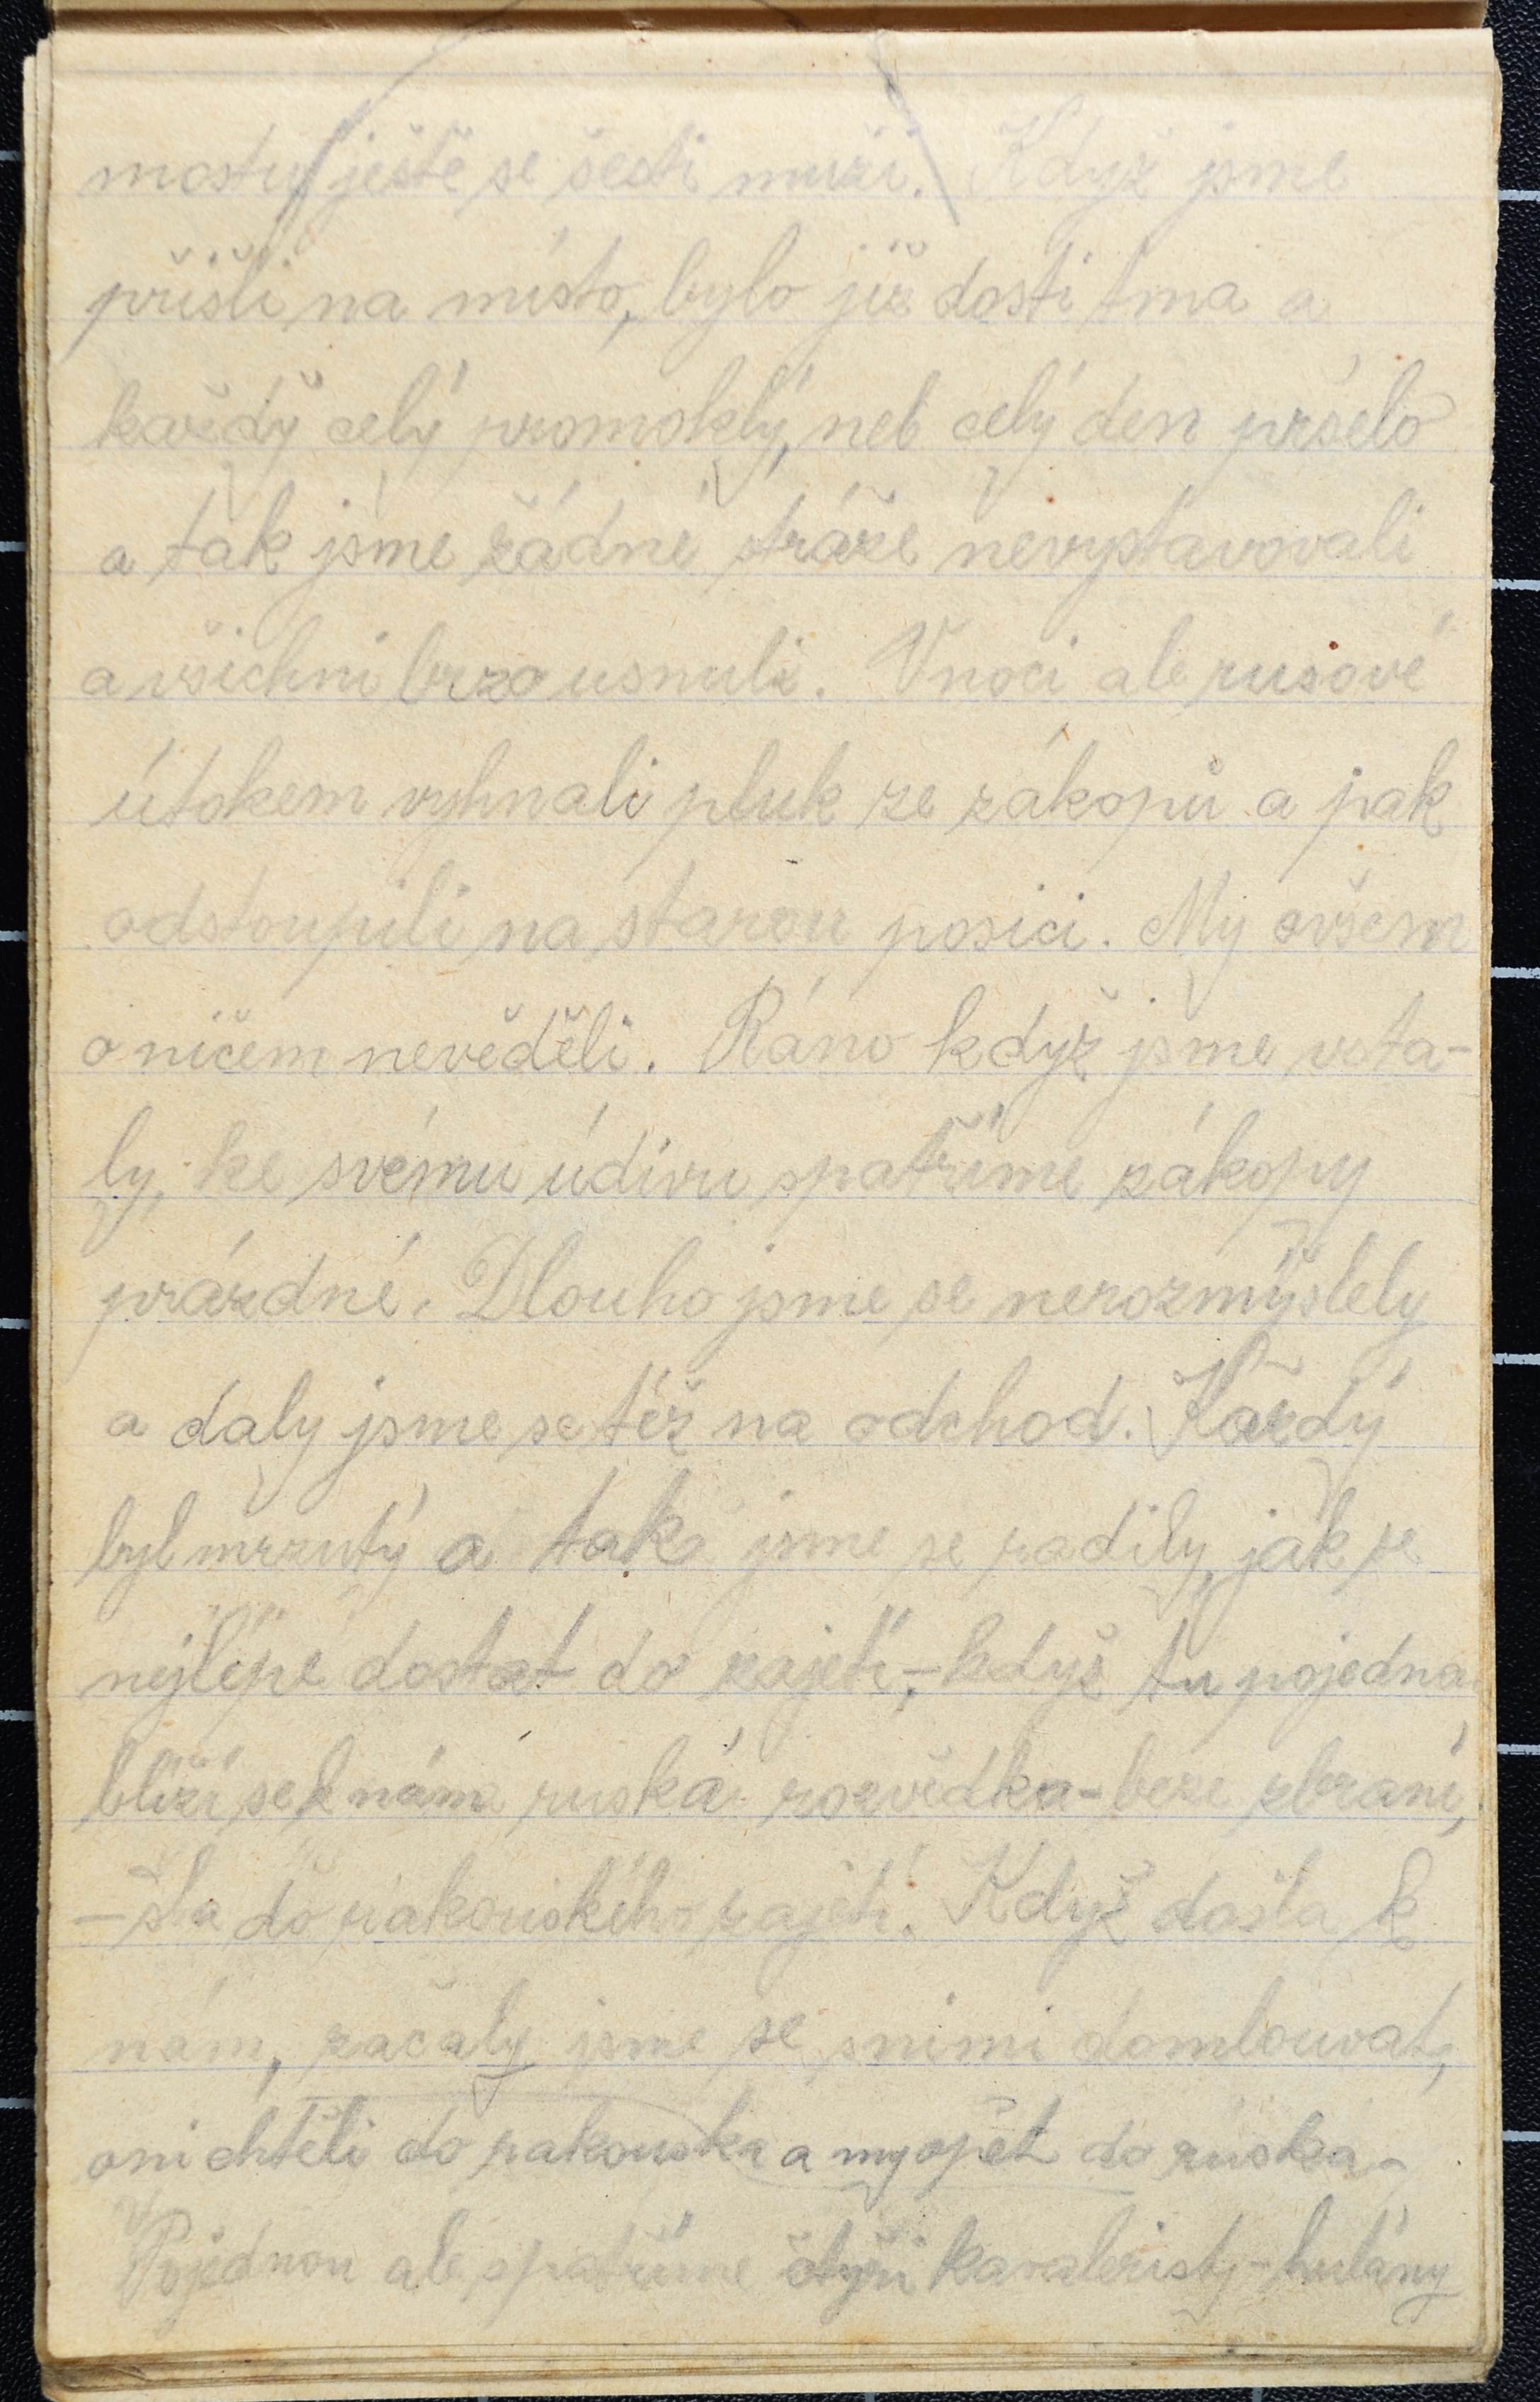 mostu ještě se šesti muži. Když jsme
přišli na místo, bylo již dosti tma a
každý celý promoklý, neb celý den pršelo
a tak jsme žádné stráže nevystavovali
a všichni brzo usnuli. Vnoci ale rusové
útokem vyhnali pluk ze zákopů a pak
odstoupili na starou posici. My ovšem
o ničem nevěděli. Ráno když jsme vsta-
ly, ke svému údivu spatříme zákopy
prázdné. Dlouho jsme se nerozmýšlely
a daly jsme se též na odchod. Každý
byl mrzutý a tak jsme se radily, jak se
nejlépe dostat do zajetí, – když tu pojedna
blíží se k nám ruská rozvědka – beze zbraní,
– šla do rakouského zajetí. Když došla k
nám, začaly jsme se snimi domlouvat,
oni chtěli do rakouska a my opět do ruska –
Pojednou ale spatříme čtyři kavaleristy – hulány